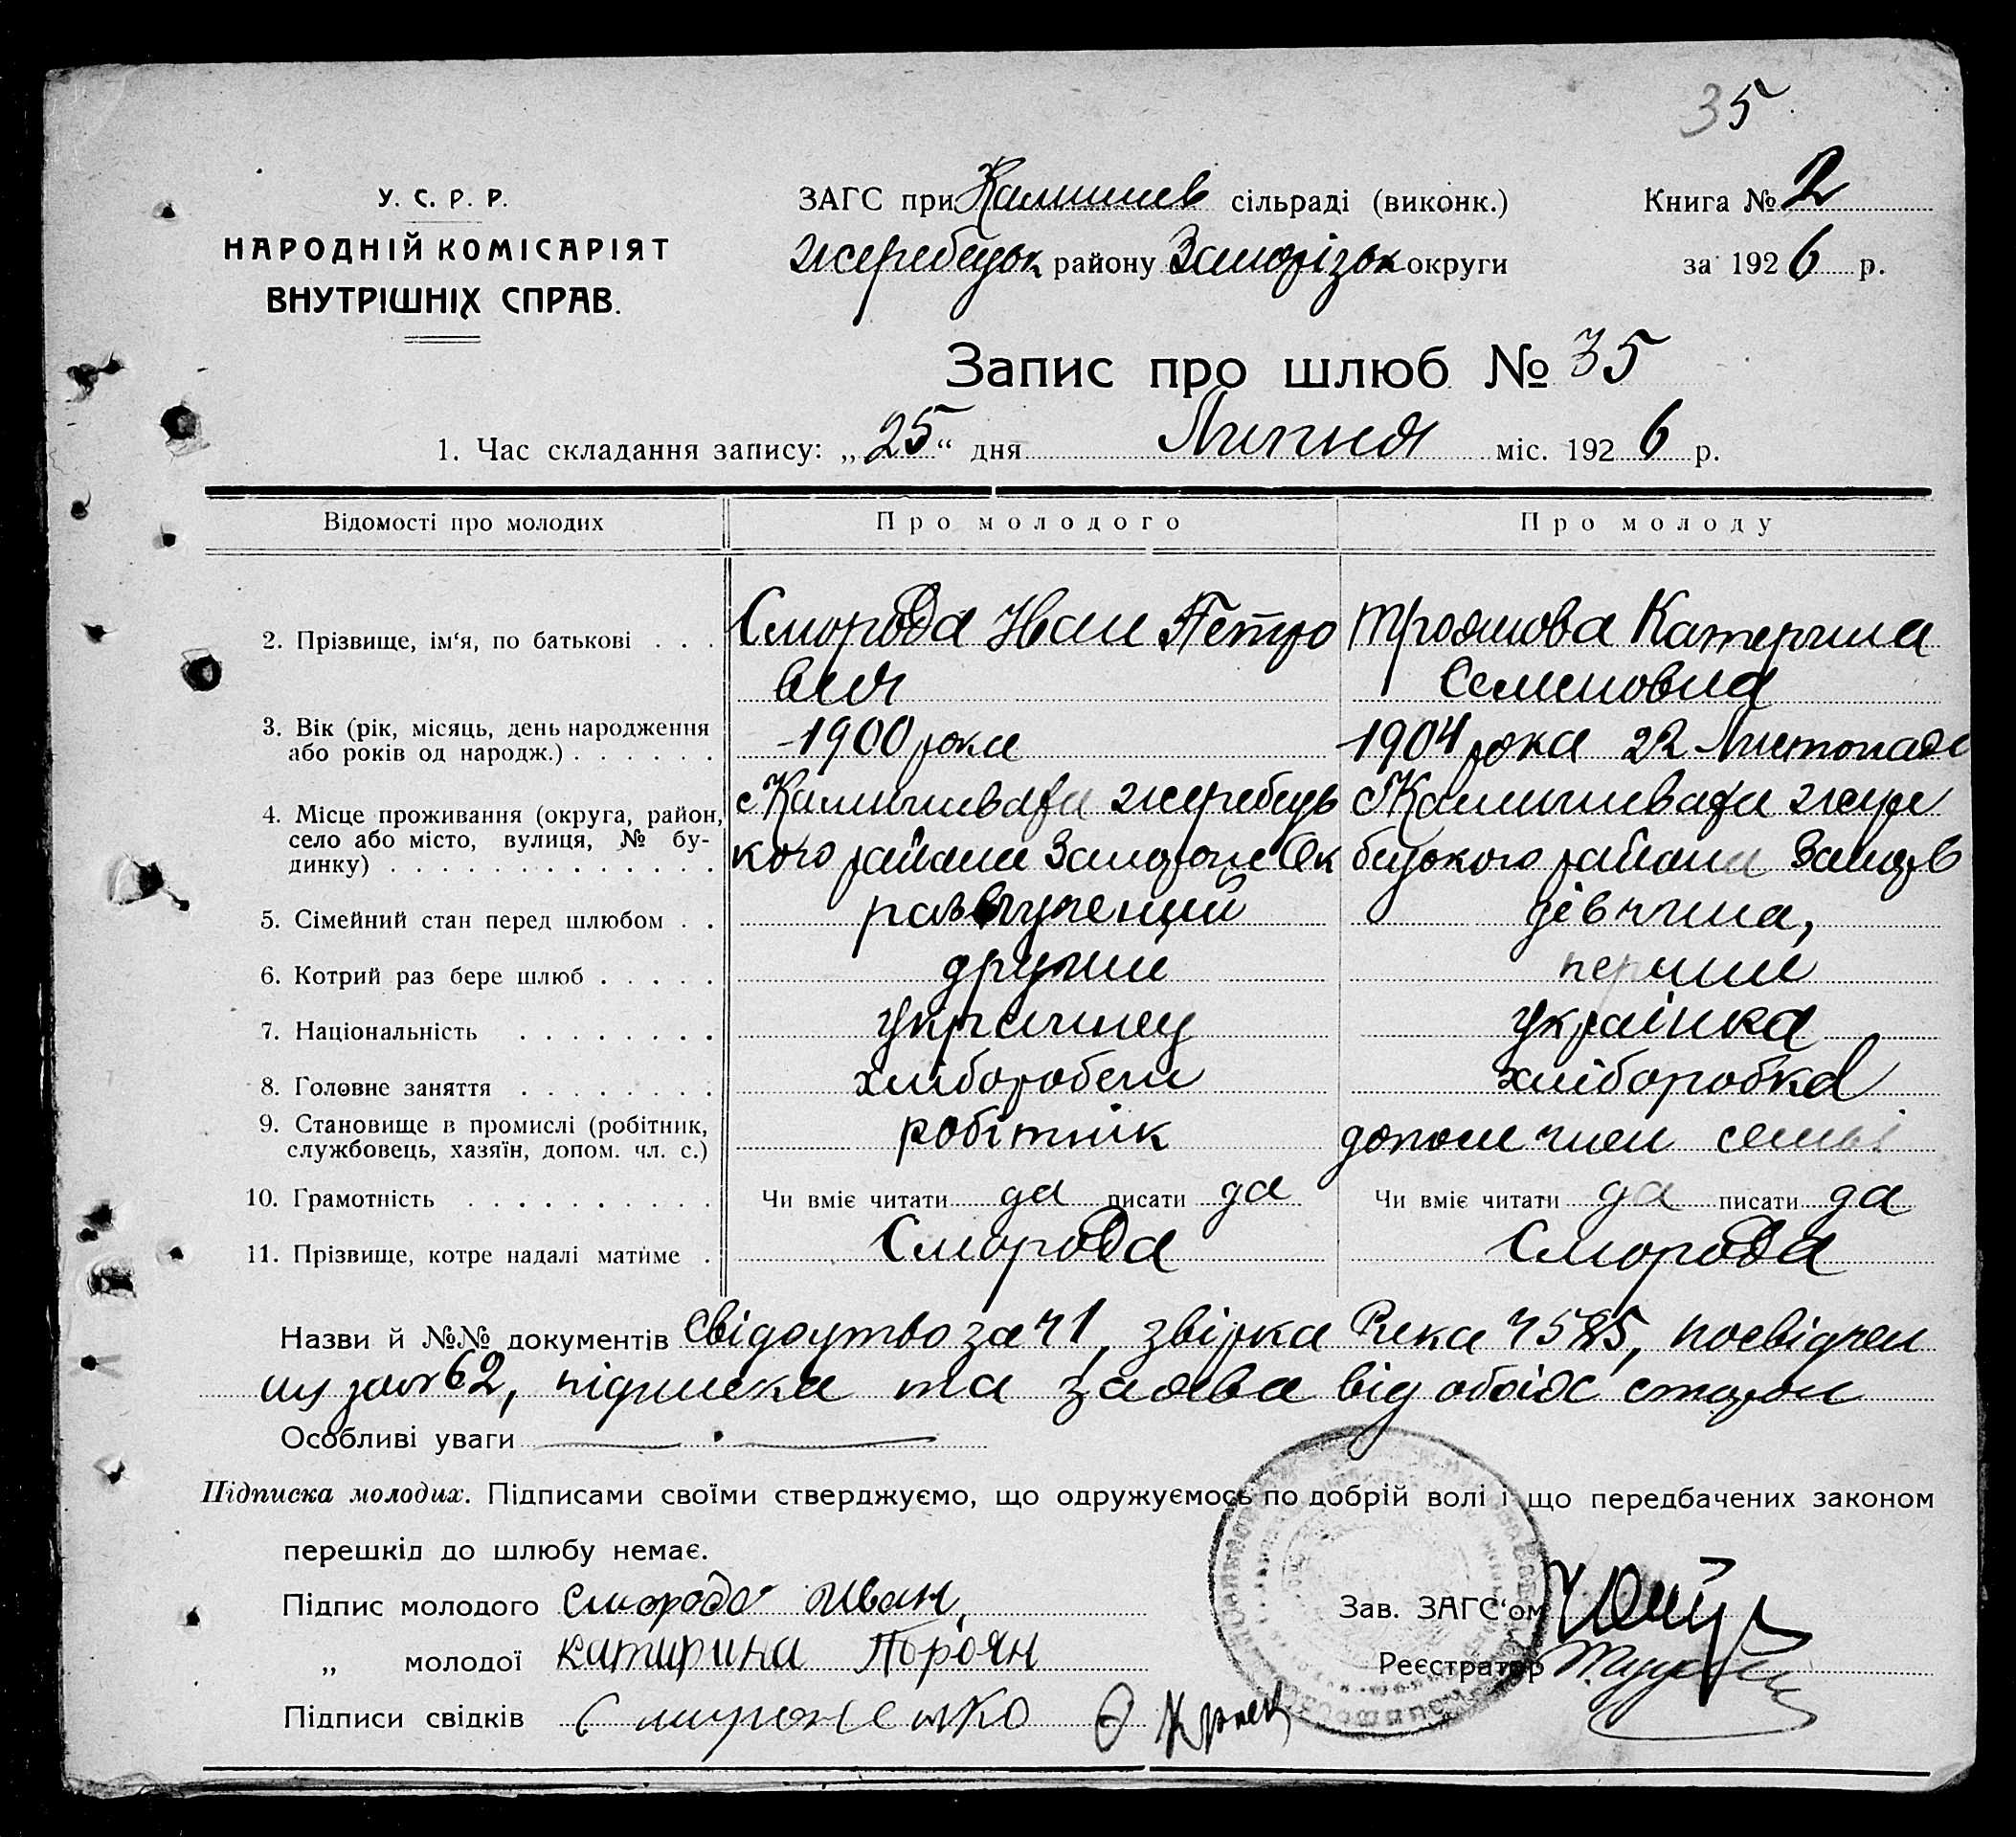 35
У. С. Р. Р.
НАРОДНІЙ КОМІСАРІЯТ
ВНУТРІШНІХ СПРАВ.
ЗАГС при Камишев сільраді (виконк.)
жеребецьк району Запорізьк округи
Книга № 2
за 1926 р.
Запис про шлюб № 35
1. Час складання запису: „25“ дня Липня міс. 1926 р.
Відомості про молодих Про молодого Про молоду
2. Прізвище, ім‘я, по батькові . . . Смород͏а Иван Петро Троянова Катерина
вич Семеновна
3. Вік (рік, місяць, день народження
або років од народж.) . . . . . . 1900 року 1904 року 22 Листопада
4. Місце проживання (округа, район,
село або місто, вулиця, № бу-
динку) . . . . . . . . . . . . . .
с Камишеваха жеребець с Камишеваха жере
кого района Запорож Ок бецького района Запор
5. Сімейний стан перед шлюбом . . дівчина,
6. Котрий раз бере шлюб . . . . . другий перший
7. Національність . . . . . . . . українец українка
8. Головне заняття . . . . . . . . хлібороб хлібобробка
9. Становище в промислі (робітник,
службовець, хазяїн, допом. чл. с.) робітнік допом член семьі
10. Грамотність . . . . . . . . . . Чи вміє читати да писати да Чи вміє читати да писати да
11. Прізвище, котре надалі матиме . Сморода Сморода
Назви й №№ документів свідоцтво за ч 1, звірка ч 585, посвідчен
ну 62, підписка та заява від обоіх сторон
Особливі уваги
Підписка молодих. Підписами своїми стверджуємо, що одружуємось по добрій волі і що передбачених законом
перешкід до шлюбу немає.
Підпис молодого Сморода Иван
„ молодої Катирина Тороян
Підписи свідків С мироненко
Зав. ЗАГС‘ом
Реєстратор